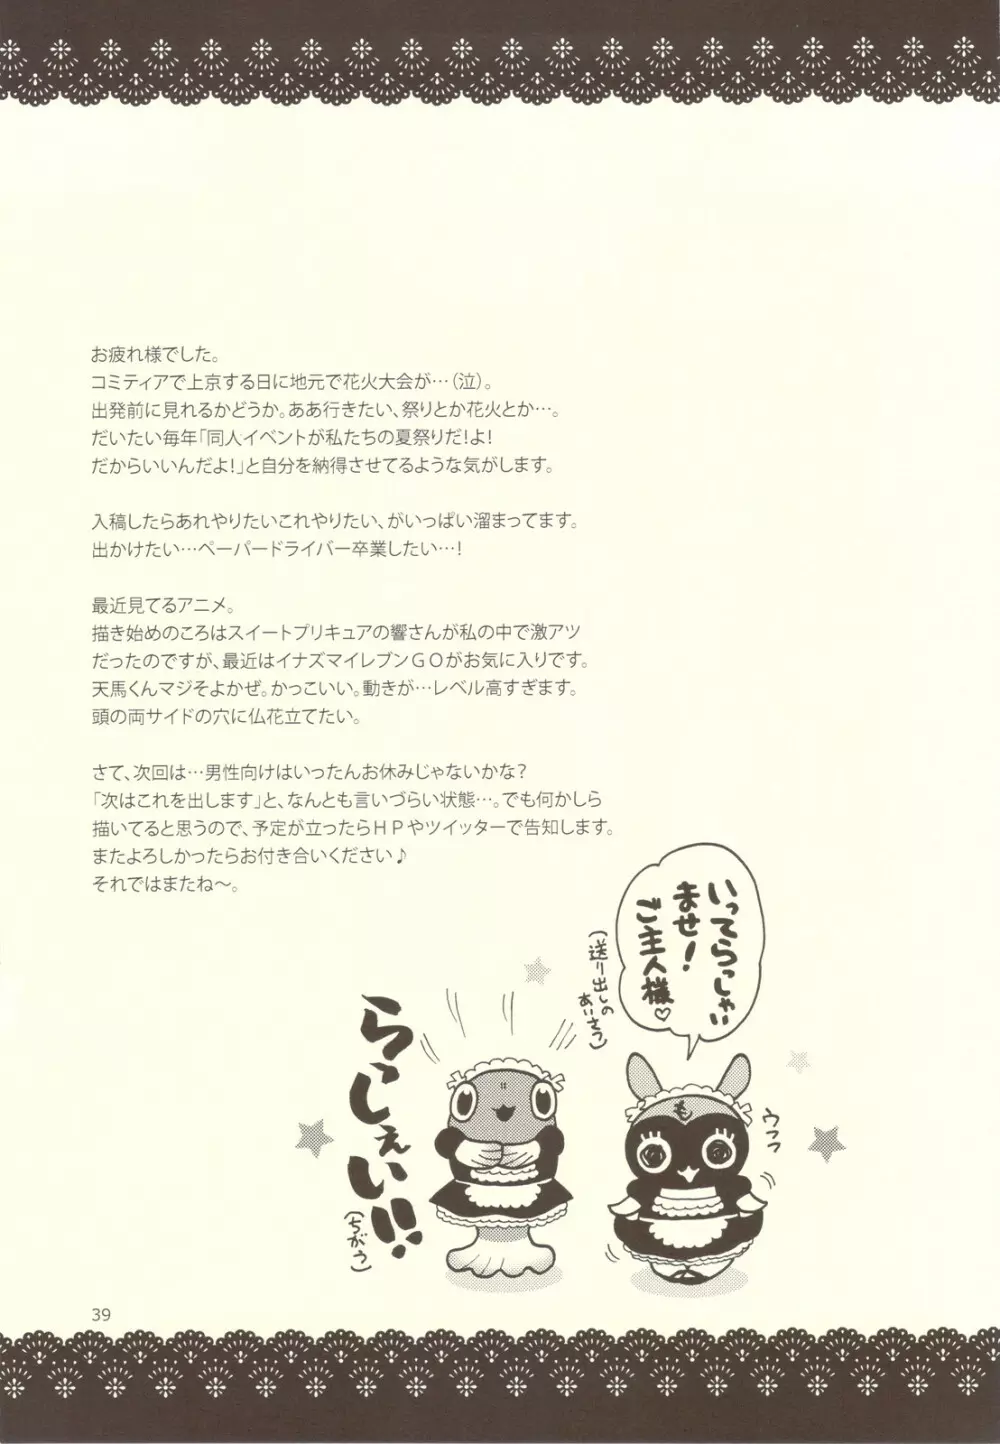 お疲れ様でした。
コミティアで上京する日に地元で花火大会が…（泣）。
出発前に見れるかどうか。ああ行きたい、祭りとか花火とか…。
だいたい毎年「同人イベントが私たちの夏祭りだ！よ！
だからいいんだよ！」と自分を納得させてるような気がします。
入稿したらあれやりたいこれやりたい、がいっぱい溜まってます。
出かけたい…ペーパードライバー卒業したい…！
最近見てるアニメ。
描き始めのころはスイートプリキュアの響さんが私の中で激アツ
だったのですが、最近はイナズマイレブンＧＯがお気に入りです。
天馬くんマジそよかぜ。かっこいい。動きが…レベル高すぎます。
頭の両サイドの穴に仏花立てたい。
さて、次回は…男性向けはいったんお休みじゃないかな？
「次はこれを出します」と、なんとも言いづらい状態…。でも何かしら
描いてると思うので、予定が立ったらＨＰやツイッターで告知します。
またよろしかったらお付き合いください♪
それではまたね～。
いってらっしゃい
ませ！
ご主人様♡
（送り出しの
あいさつ）
らっしぇい！！
（ちがう）
も
ウフフ
39